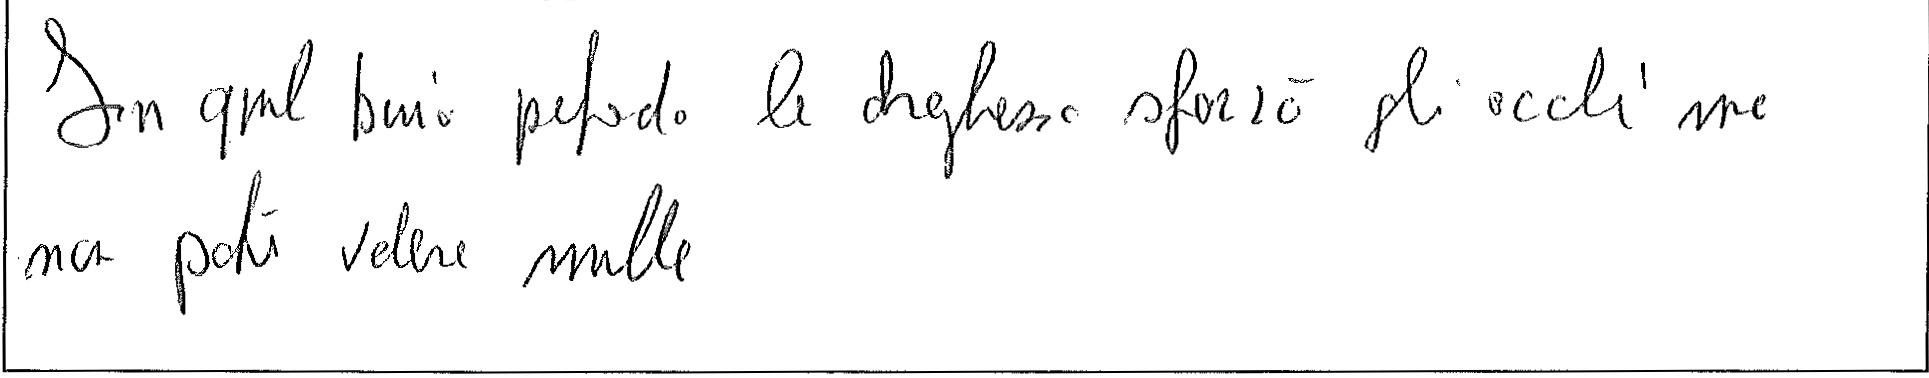 In quel buio pefondo la draghessa sforzò gli occhi ma
non poté vedere nulla